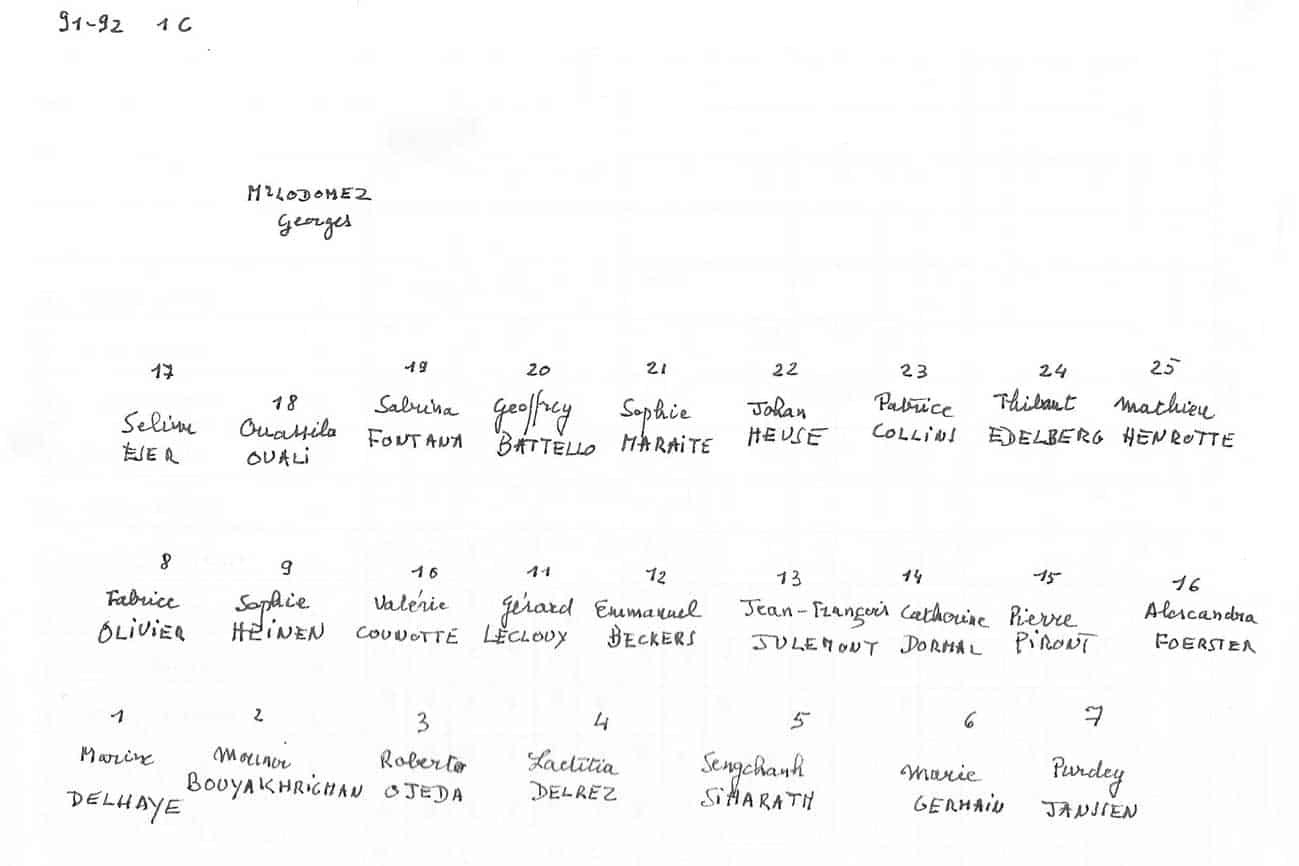 91-92 1C
Mr LODOMEZ
Georges
17 18 19 20 21 22 23 24 25
Selim Ouassila Sabrina Geoffrey Sophie Johan Patrice Thibaut Mathieu
OUALI FONTANA BATTELLO MARAITE HEUSE COLLINS EDELBERG HENROTTE
8 9 10 11 12 13 14 15 16
Fabrice Sophie Valérie Gérard Emmanuel Jean-François Catherine Pierre Alescandra
OLIVIER HEINEN COUNOTTE LECLOUX BECKERS JULEMONT DORMAL PIRONT FOERSTER
1 2 3 4 5 6 7
Mounir Roberto Laetitia Sengchanh Marie Purdey
DELHAYE BOUYAKHRICHAN OJEDA DELREZ SIHARATH GERMAIN JANSSEN